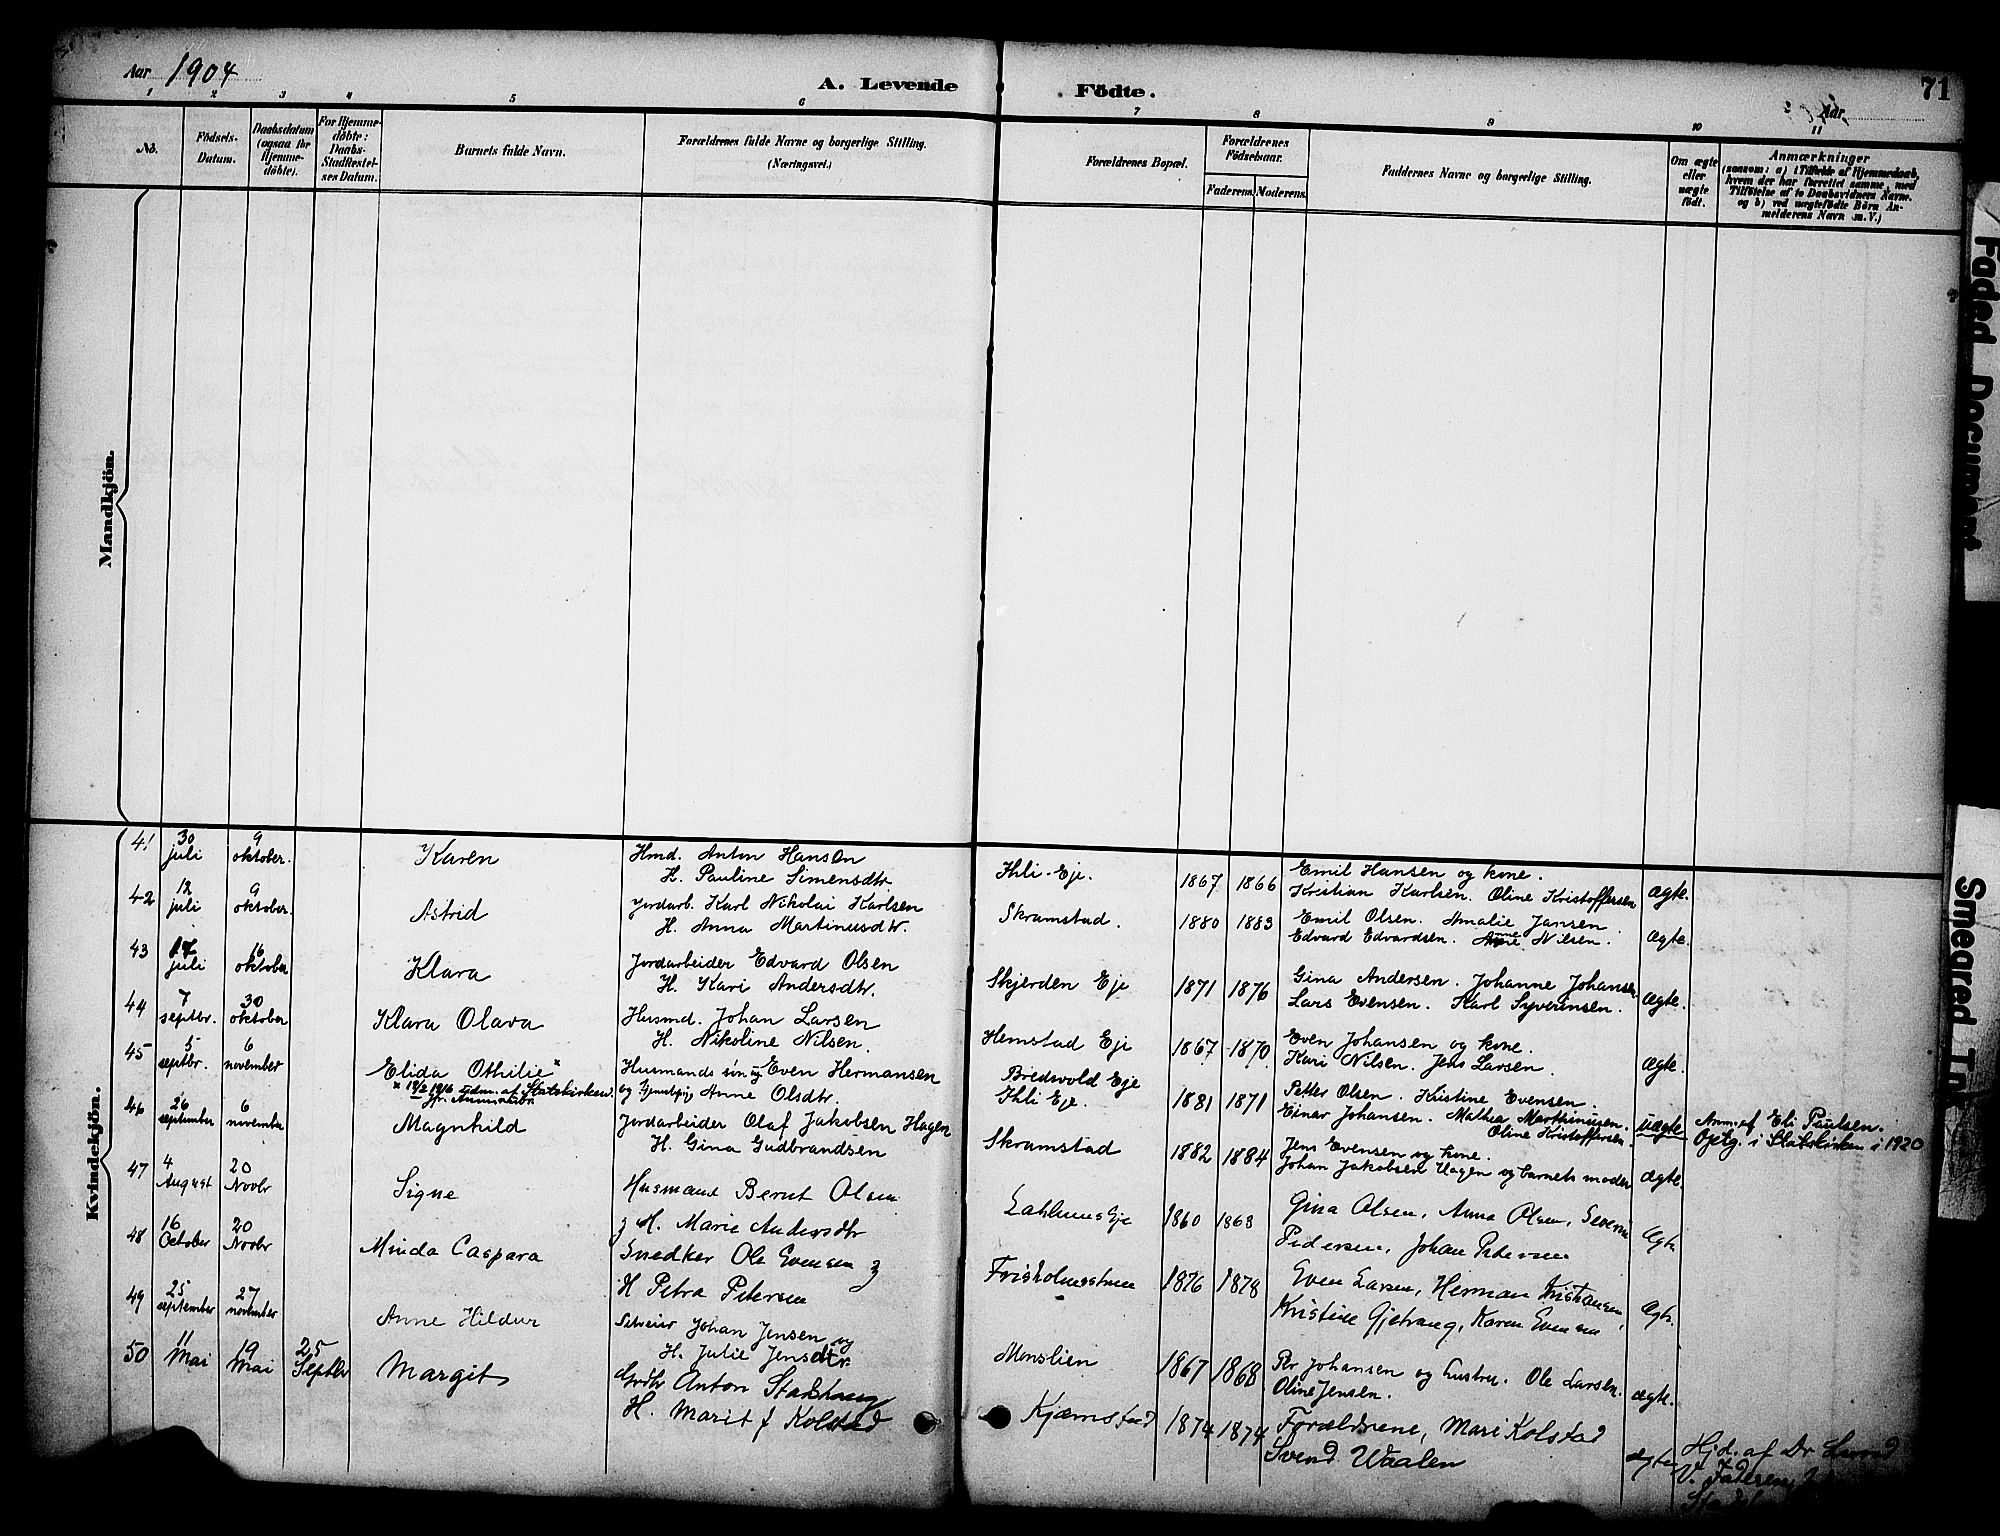 Aar 1904
A. Levende Födte.
Aar
71
1 2 3 4 5 6 7 8 9 10 11
No.
Födsels-
Datum.
Daabsdatum
(ogsaa for
Hjemme-
döbte).
For Hjemme-
döbte:
Daabs-
Stadfæstel-
ses Datum.
Barnets fulde Navn.
Forældrenes fulde Navne og borgerlige Stilling.
(Næringsvei.)
Forældrenes Bopæl.
Forældrenes
Födselsaar.
Faderens. Moderens.
Faddernes Navne og borgerlige Stilling.
Om ægte
eller
uægte
födt.
Anmærkninger
(saasom: a) i Tilfælde af Hjemmedaab,
hvem der har forrettet samme, med
Tilföielse af to Daabsvidners Navne.
og b) ved uægtefödte Börn An-
melderens Navn m.V.)
Mandkjön.
Kvindekjön.
41 30 juli 9 oktober. Karen Hmd. Anton Hansen
H. Pauline Simensdtr. Ihli-Eje. 1867 1866 Emil Hansen og kone.
Kristian Karlsen. Oline Kristoffersen Ægte.
42 12 juli 9 oktober. Astrid Jordarb. Karl Nikolai Karlsen
H. Anna Martinusdtr. Skramstad. 1880 1883 Emil Olsen. Amalie Jansen.
Edvard Edvardsen. Anne Nilsen. Ægte.
43 17 juli 16 oktober Klara Jordarbeider Edvard Olsen
H. Kari Andersdtr. Skjerden Eje 1871 1876 Gina Andersen. Johanne Johansen
Lars Evensen. Karl Syverinsen. Ægte.
44 7 septbr. 30 oktober Klara Olava Husmd. Johan Larsen
H. Nikoline Nilsen. Hemstad Eje 1867 1870 Even Johansen og kone.
Kari Nilsen. Jens Larsen. Ægte.
45 5 septbr. 6 november Elida Othilie x Husmands søn ug Even Hermansen
x 19/2 1916 udm. af Statskirken. og Anne Olsdtr. Bredsvold Eje
Ihli Eje. 1881 1871 Petter Olsen. Kristine Evensen.
Einar Johansen. Mathea Marthinusen.
Oline Kristoffersen. uægte Anm. af Eli Paulsen.
Optg. i Statskirken i 1920
46 26 september 6 november Magnhild Jordarbeider Olaf Jakobsen Hagen
H. Gina Gudbrandsen Skramstad 1882 1884 Jens Evensen og kone.
Johan Jakobsen Hagen og barnets moder Ægte.
47 4 August 20 Novbr Signe Husmand Bernt Olsen
H. Marie Andersdtr Eje 1860 1863 Gina Olsen, Anna Olsen, Severin
Pedersen, Johan Pedersen Ægte
48 16 October 20 Novbr Minda Caspara Snedker Ole Evensen
H Petra Petersen 1876 1878 Even Larsen, Herman Kristiansen
Kristine Gjetvang, Karen Evensen Ægte.
49 25 september 27 november Anne Hildur Selveier Johan Jensen og
H. Julie Jensdtr. Monslien 1867 1868 Per Johansen og hustru. Ole Larsen.
Oline Jensen. Ægte.
50 11 Mai 19 Mai 25 Septbr Margit Grdbr Anton
H. Marit f Kolstad Kjæmstad 1874 1874 Forældrene, Mari Kolstad
Svend Waalen ægte Hjd. af Dr
Faded Document
Smeared Ink